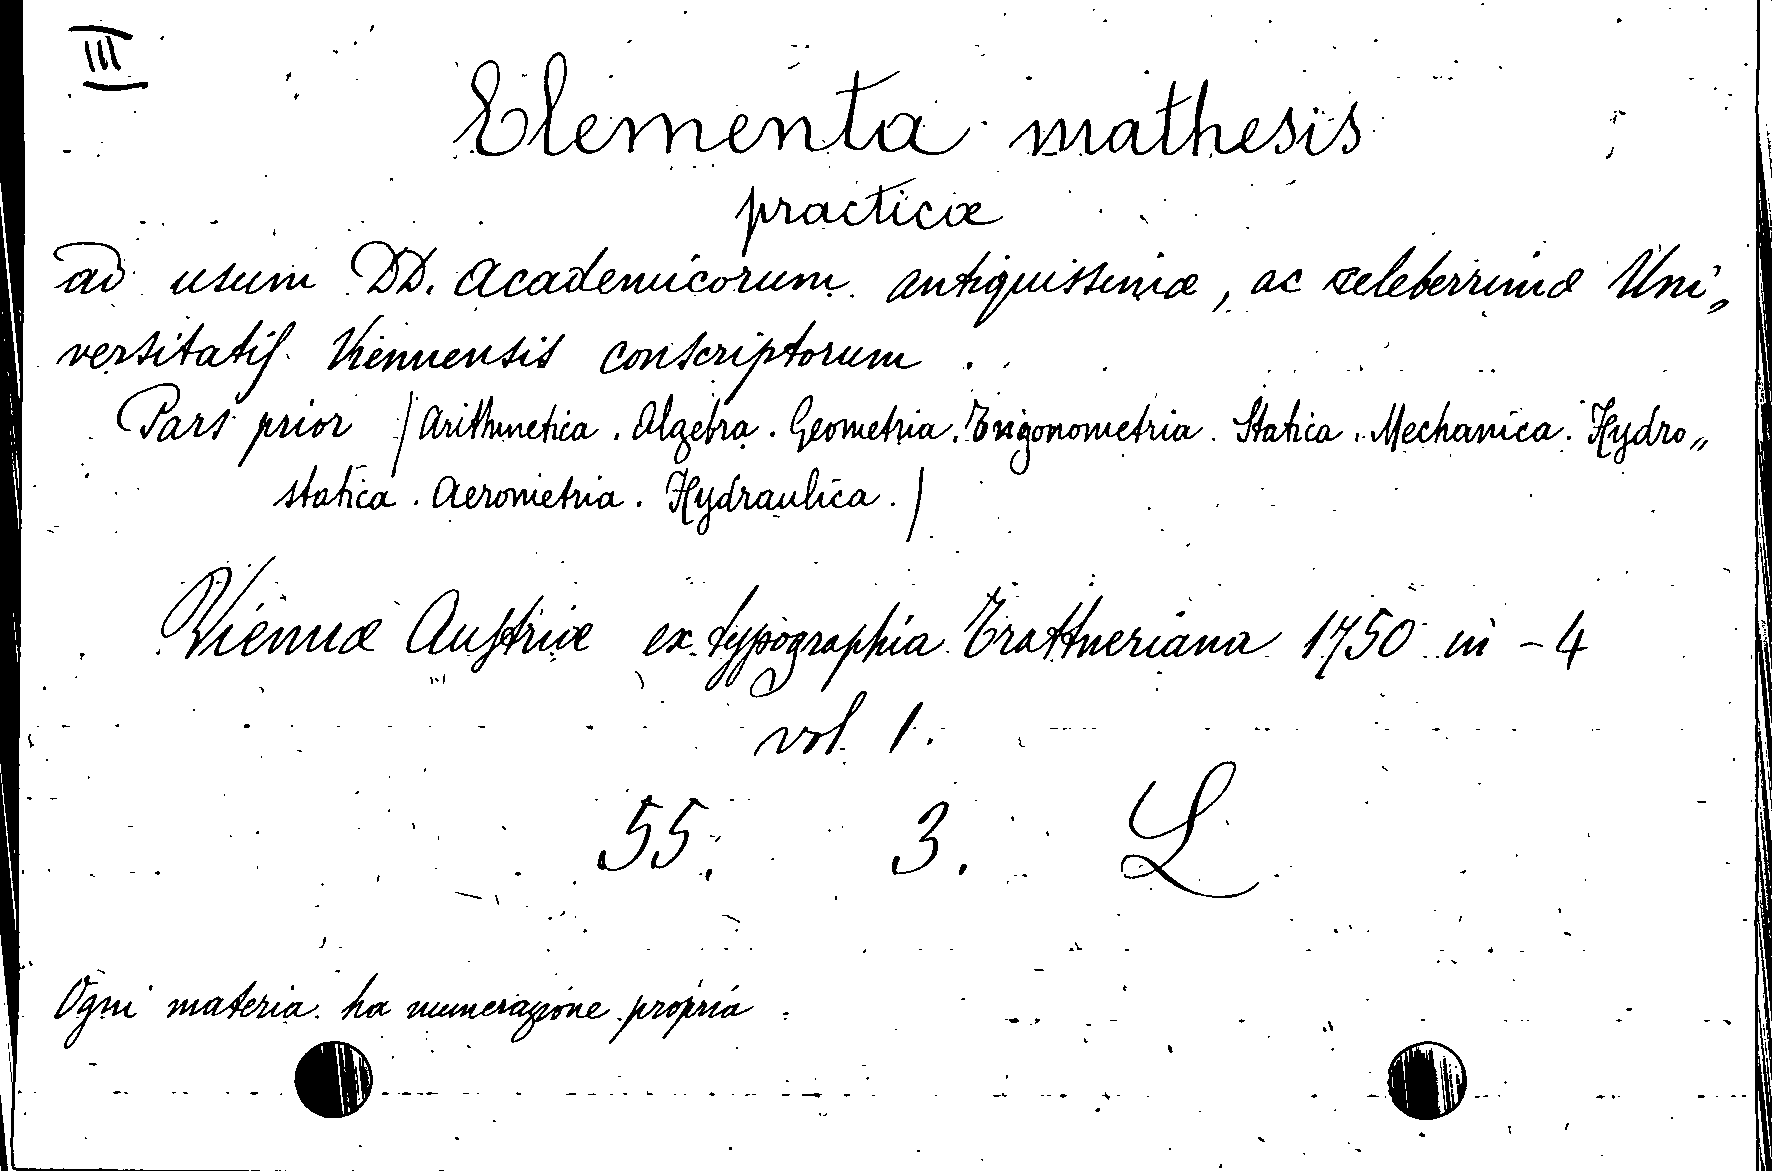 III
Elementa mathesis
practicæ
ad usum DD. Academicorum antiquissimæ, ac celeberrimæ Uni„
versitatis Viennensis conscriptorum.
Pars prior / Arithmetica. Algebra. Geometria. Trigonometria. Statica. Mechanica. Hydro„
statica. Aerometria. Hydraulica. /
Viennæ Austriæ ex typographia Trattneriana 1750 in-4
vol. 1.
55. 3. L
Ogni materia ha numerazione propria